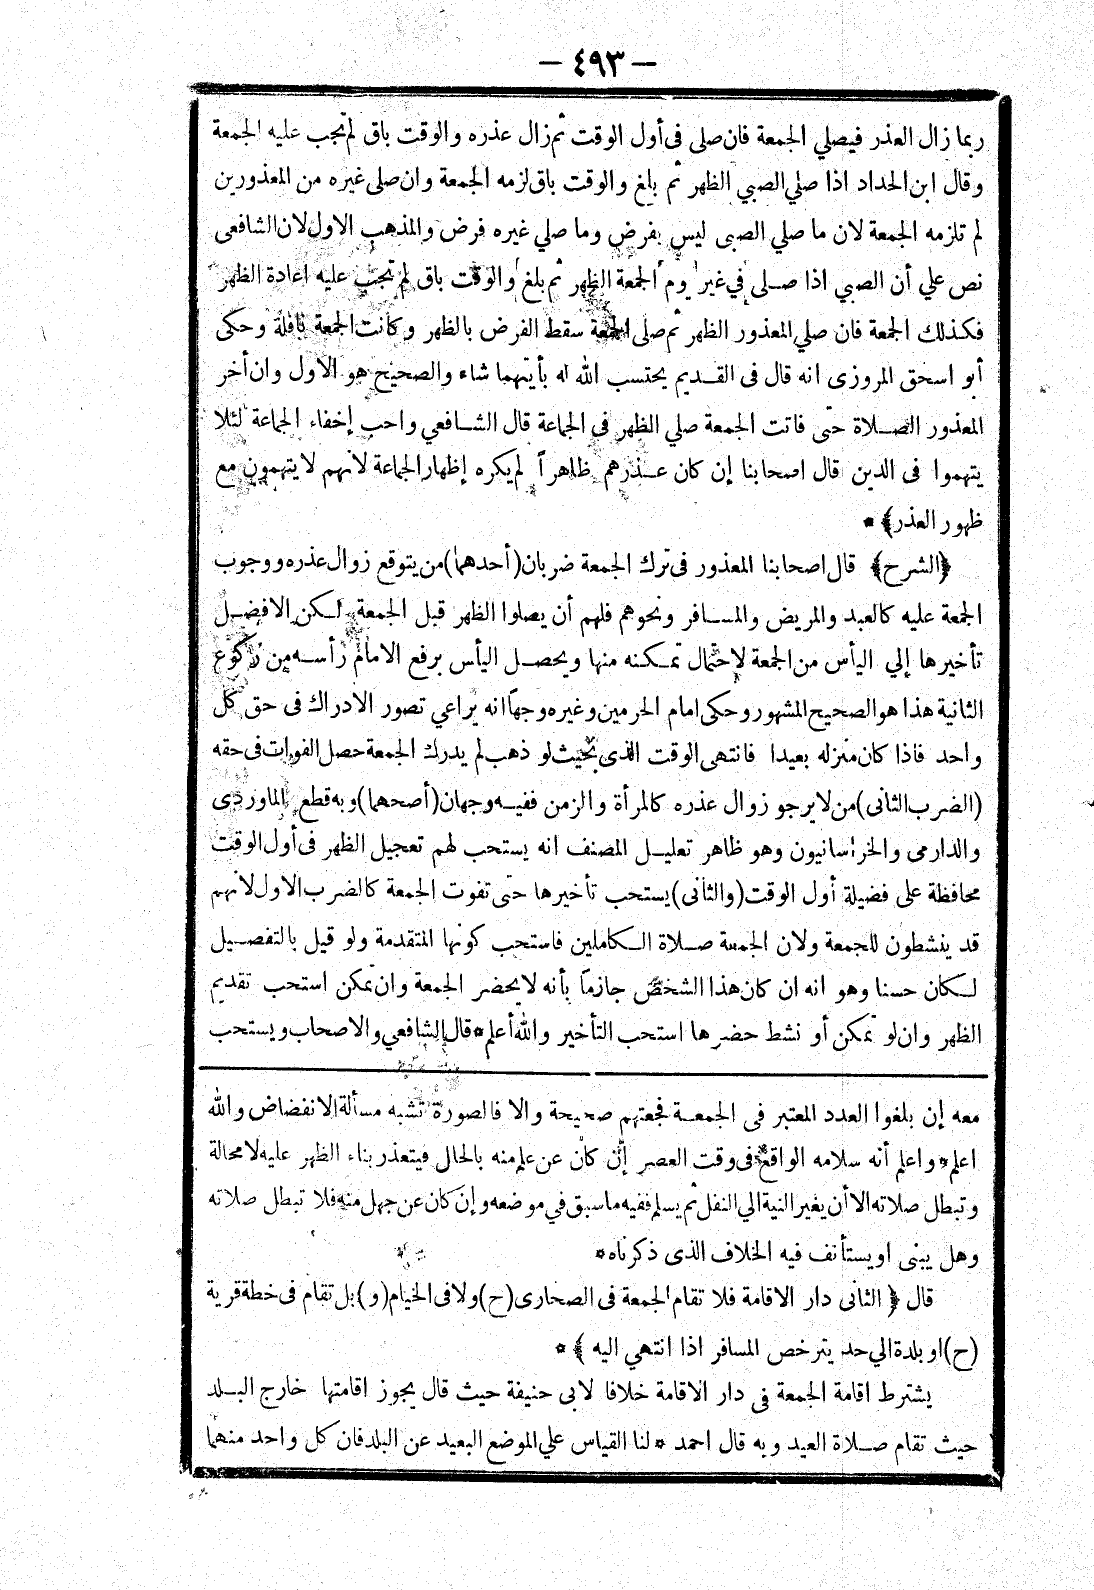 — ٤٩٣ —
ربما زال العذر فيصلي الجمعة فان صلى فى أول الوقت ثم زال عذره والوقت باق لم تجب عليه الجمعة
وقال ابن الحداد اذا صلي الصبي الظهر ثم بلغ والوقت باق لزمه الجمعة وان صلى غيره من المعذورين
لم تلزمه الجمعة لان ما صلي الصبى ليس بفرض وما صلي غيره فرض والمذهب الاول لان الشافعى
نص علي أن الصبي اذا صلى في غير يوم الجمعة الظهر ثم بلغ والوقت باق لم تجب عليه اعادة الظهر
فكذلك الجمعة فان صلي المعذور الظهر ثم صلى الجمعة سقط الفرض بالظهر وكانت الجمعة نافلة وحكى
أبو اسحق المروزى انه قال فى القديم يحتسب الله له بأيتهما شاء والصحيح هو الاول وان أخر
المعذور الصلاة حتى فاتت الجمعة صلي الظهر في الجماعة قال الشافعي واحب إخفاء الجماعة لئلا
يتهموا فى الدين قال اصحابنا إن كان عذرهم ظاهراً لم يكره إظهار الجماعة لأنهم لا يتهمون مع
ظهور العذر﴾ *
﴿الشرح﴾ قال اصحابنا المعذور فى ترك الجمعة ضربان (أحدهما) من يتوقع زوال عذره ووجوب
الجمعة عليه كالعبد والمريض والمسافر ونحوهم فلهم أن يصلوا الظهر قبل الجمعة لكن الافضل
تأخيرها إلي اليأس من الجمعة لاحتمال تمكنه منها ويحصل اليأس برفع الامام رأسه من ركوع
الثانية هذا هو الصحيح المشهور وحكى امام الحرمين وغيره وجهاً انه يراعي تصور الادراك فى حق كل
واحد فاذا كان منزله بعيدا فانتهى الوقت الذى بحيث لو ذهب لم يدرك الجمعة حصل الفوات فى حقه
(الضرب الثانى) من لا يرجو زوال عذره كالمرأة والزمن ففيه وجهان (أصحهما) وبه قطع الماوردى
والدارمى والخراسانيون وهو ظاهر تعليل المصنف انه يستحب لهم تعجيل الظهر فى أول الوقت
محافظة على فضيلة أول الوقت (والثانى) يستحب تأخيرها حتى تفوت الجمعة كالضرب الاول لأنهم
قد ينشطون للجمعة ولان الجمعة صلاة الكاملين فاستحب كونها المتقدمة ولو قيل بالتفصيل
لكان حسنا وهو انه ان كان هذا الشخص جازما بأنه لا يحضر الجمعة وان تمكن استحب تقديم
الظهر وان لو تمكن أو نشط حضرها استحب التأخير والله أعلم * قال الشافعي والاصحاب ويستحب
معه إن بلغوا العدد المعتبر فى الجمعة فجمعتهم صحيحة والا فالصورة تشبه مسألة الانفضاض والله
اعلم * واعلم أنه سلامه الواقع فى وقت العصر إن كان عن علم منه بالحال فيتعذر بناء الظهر عليه لا محالة
وتبطل صلاته الا أن يغير النية الي النفل ثم يسلم ففيه ما سبق في موضعه وإن كان عن جهل منه فلا تبطل صلاته
وهل يبنى او يستأنف فيه الخلاف الذى ذكرناه *
قال ﴿ الثانى دار الاقامة فلا تقام الجمعة فى الصحارى (ح) ولا فى الخيام (و) بل تقام فى خطة قرية
(ح) او بلدة الي حد يترخص المسافر اذا انتهي اليه ﴾ *
يشترط اقامة الجمعة فى دار الاقامة خلافا لابى حنيفة حيث قال يجوز اقامتها خارج البلد
حيث تقام صلاة العيد وبه قال احمد * لنا القياس علي الموضع البعيد عن البلد فان كل واحد منهما